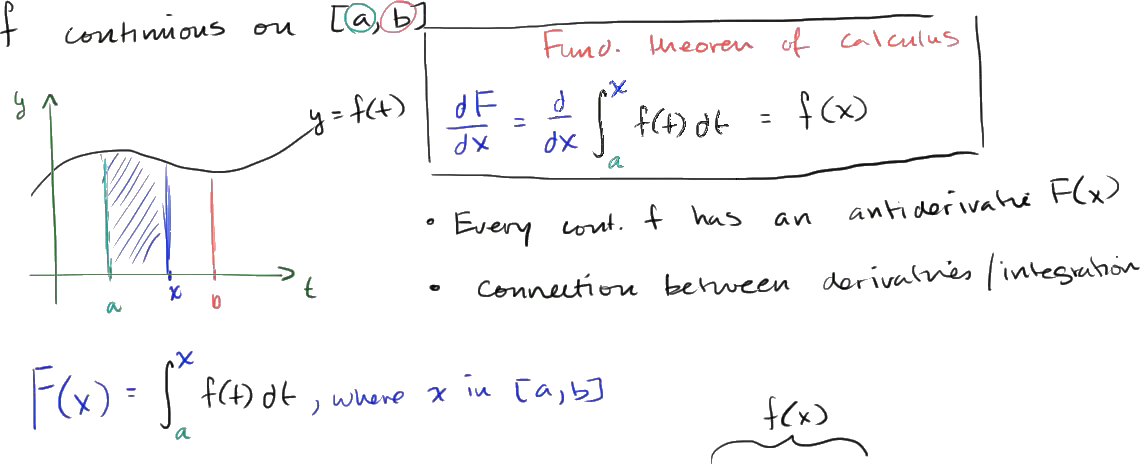 f continuous on [a, b]
Fund. theorem of calculus
y
y = f(t)
dF/dx = d/dx ∫_a^x f(t) dt = f(x)
• Every cont. f has an antiderivative F(x)
• connection between derivatives/integration
a x b t
F(x) = ∫_a^x f(t) dt, where x in [a,b]
f(x)